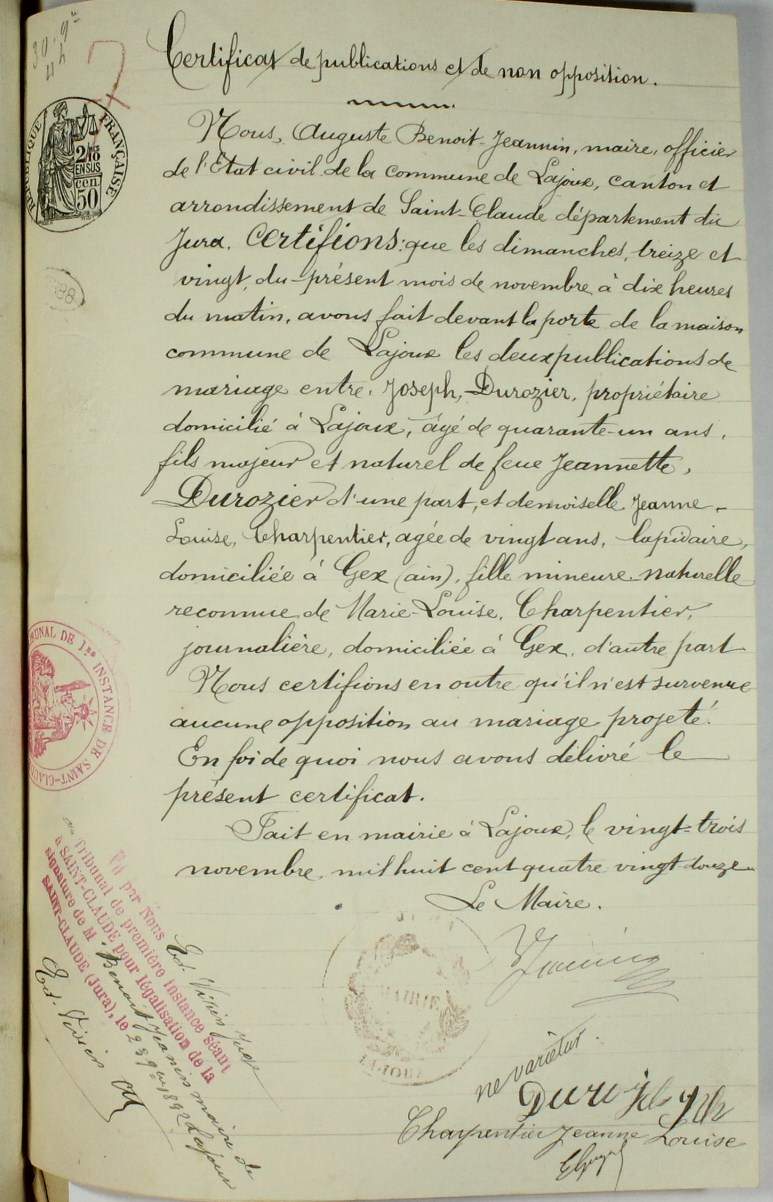 30. 9re
4h
7
Certificat de publications et de non opposition.
RÉPUBLIQUE FRANÇAISE
2/10
EN SUS
cen.
50
Nous, Auguste Benoit-Jeannin, maire, officier
de l'Etat civil de la commune de Lajoux, canton et
arrondissement de Saint-Claude département du
Jura. Certifions: que les dimanches, treize et
vingt, du présent mois de novembre à dix heures
du matin, avons fait devant la porte de la maison
commune de Lajoux les deux publications de
mariage entre, Joseph, Durozier, propriétaire
domicilié à Lajoux, âgé de quarante-un ans,
fils majeur et naturel de feue Jeannette,
Durozier d'une part, et demoiselle Jeanne-
Louise, Charpentier, agée de vingt ans, lapidaire,
domiciliée à Gex (ain), fille mineure naturelle
reconnue de Marie-Louise, Charpentier,
journalière, domiciliée à Gex, d'autre part
Nous certifions en outre qu'il n'est survenue
aucune opposition au mariage projeté.
En foi de quoi nous avons délivré le
présent certificat.
Fait en mairie à Lajoux, le vingt-trois
novembre, mil huit cent quatre vingt douze
Le Maire.
TRIBUNAL DE 1re INSTANCE DE SAINT-CLAUDE
Vu par Nous Ed. Vivien Juge
au Tribunal de première Instance séant
à SAINT-CLAUDE pour légalisation de la
signature de M. Benoit Jeannin maire de Lajoux
SAINT-CLAUDE (Jura), le 23 9bre 1892
Ed. Vivien
JURA
MAIRIE
LAJOUX
Jeannin
ne varietur.
Charpentier Jeanne Louise